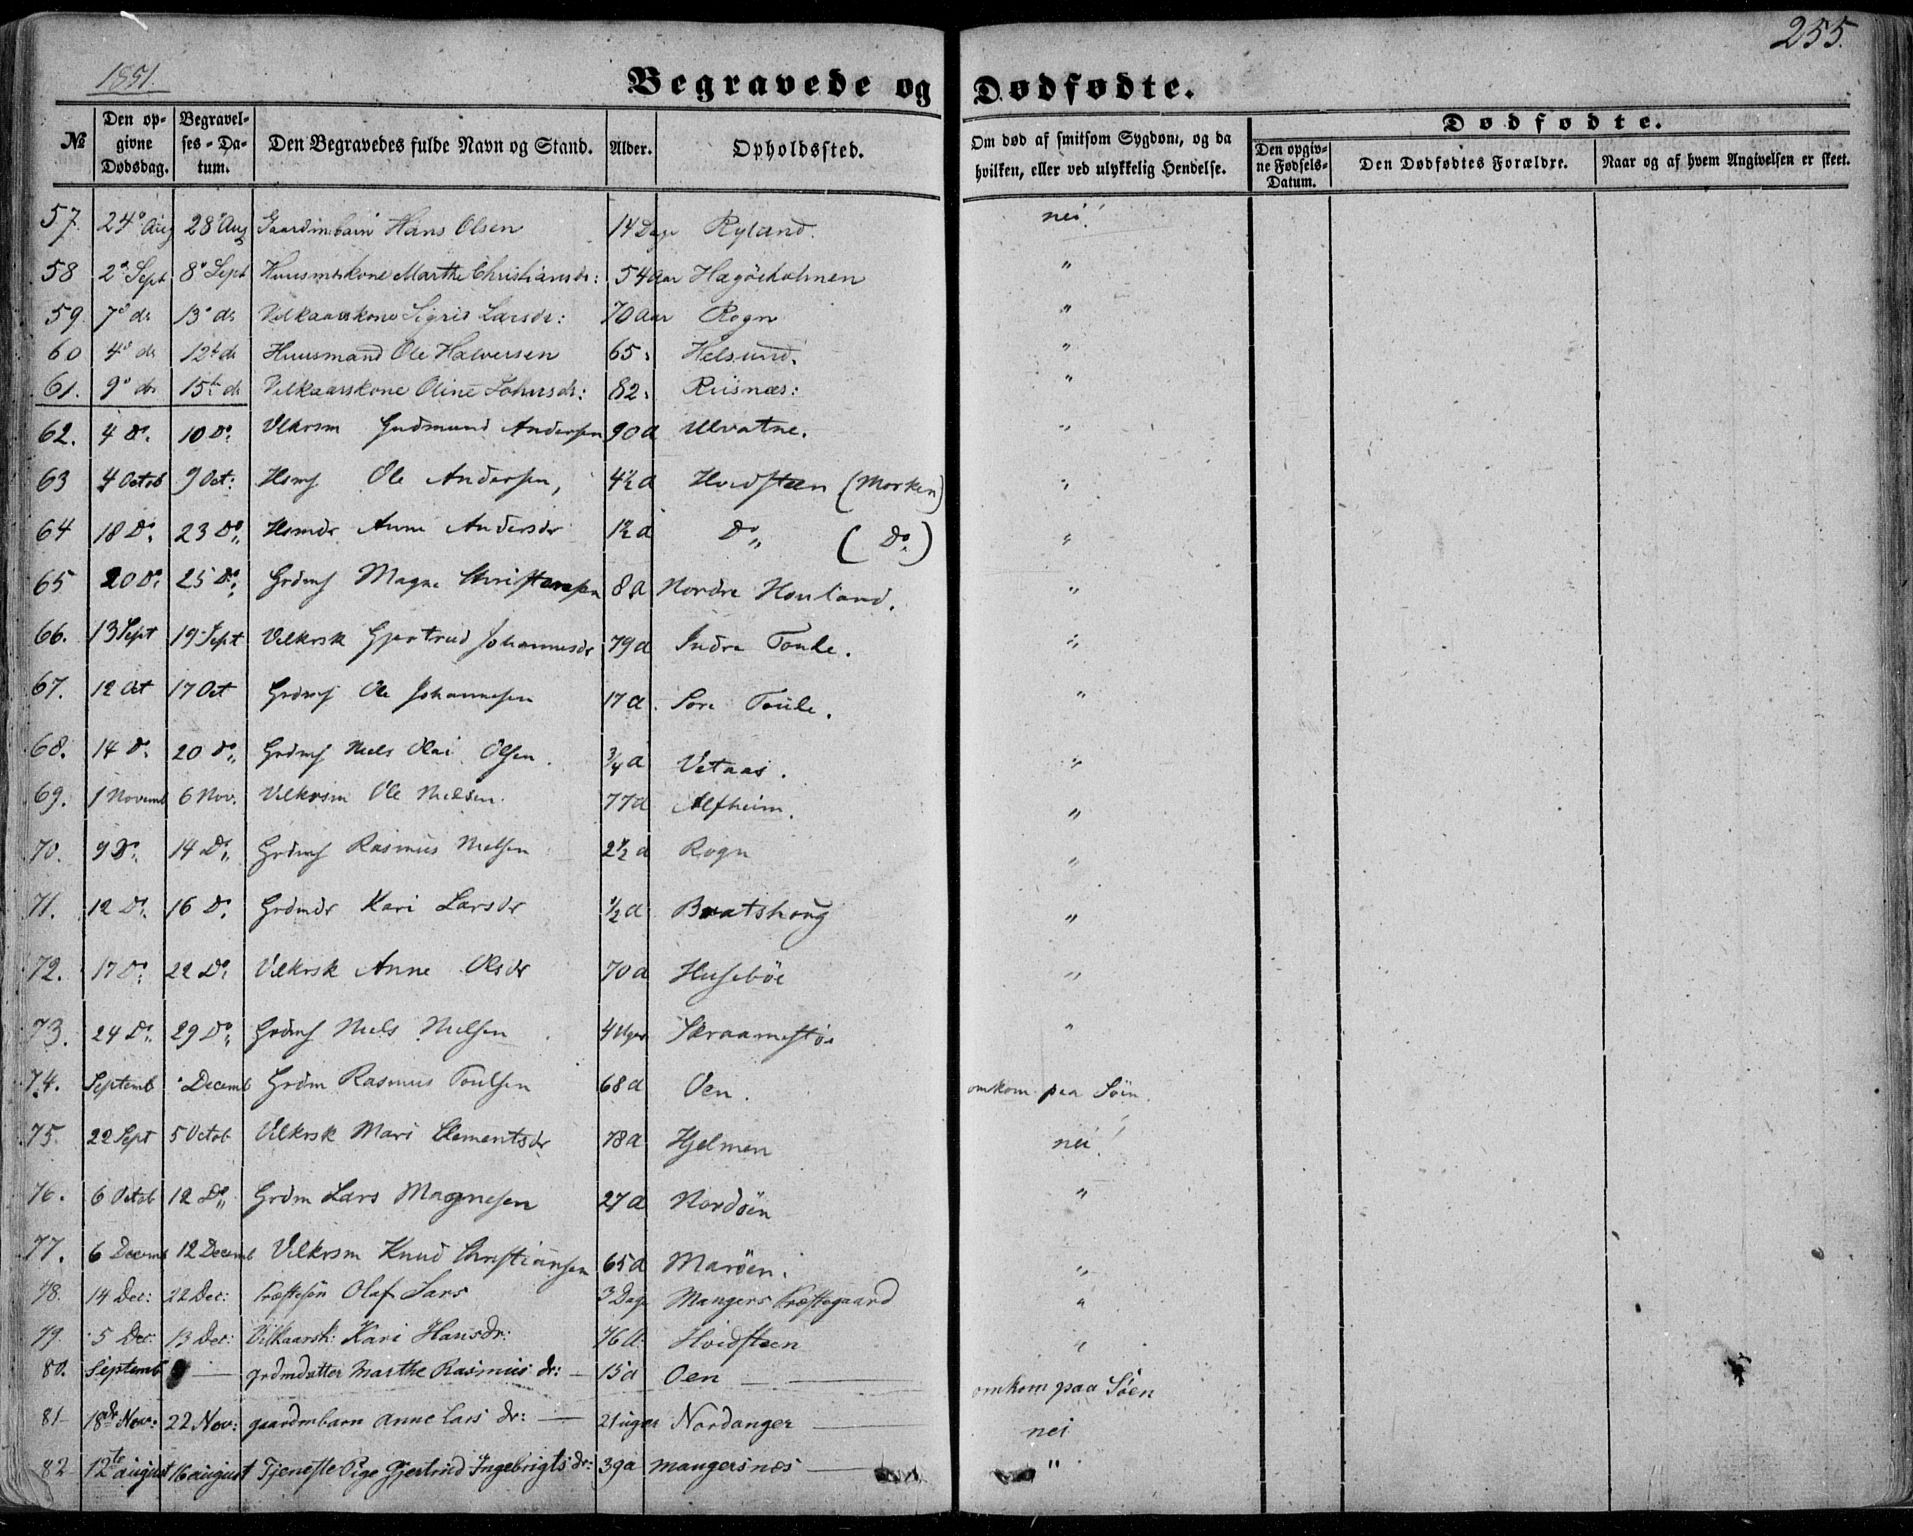 255.
1851.
Begravede og Dødfødte.
№ | Den opgivne Dødsdag. | Begravelses-Datum. | Den Begravedes fulde Navn og Stand. | Alder. | Opholdssted. | Om død af smitsom Sygdom, og da hvilken, eller ved ulykkelig Hendelse. | Dødfødte. | Den opgivne Fødsels-Datum. | Den Dødfødtes Forældre. | Naar og af hvem Angivelsen er skeet.
57. 24° Aug 28° Aug Gaardmbarn Hans Olsen 14 Dage Ryland. nei!
58 2° Sept 8° Sept Huusmdskone Marthe Christiansdr: 54 Aar Hagöeholmen "
59. 7° ds 13° ds Vilkaarskone Sigris Larsdr: 70 Aar Rogn "
60 4° ds 12t ds Huusmand Ole Halversen 65: Helsund. "
61. 9° ds 15t ds Vilkaarskone Oline Johnsdr: 82: Riisnæs: "
62. 4 Do. 10 Do: Vlkrsm Gudmund Andersen 90 a Ulvatne. "
63 4 Octob 9 Oct: Hsms Ole Andersen, 4½ a Hvidsteen (Morken) "
64 18 Do. 23 Do„ Hsmdr Anne Andersdr 1½ a Do„ (Do.) "
65 20 Do: 25 Do„ Grdms Magne Christensen 8 a Nordre Houland. "
66. 13 Sept 19 Sept Vilkrsk Gjertrud Johannesdr 79 a Indre Toule. "
67. 12 Oct 17 Oct Grdms Ole Johannesen 17 a. Söre Toule. "
68. 14 Do. 20 Do„ Grdms Niels Olai Olsen. ¾ a Vetaas. "
69. 1 Novemb 6 Nov. Vilkrsm Ole Nielsen. 77 a Alfheim. "
70. 9 Do. 14 Do„ Grdms Rasmus Nielsen 2½ a Rogn "
71. 12 Do. 16 Do. Grdmdr Kari Larsdr ½ a Bratshoug "
72. 17 Do. 22 Do. Vilkrsk Anne Olsdr 70 a Huseböe "
73. 24 Do. 29 Do„ Grdms Niels Nielsen 4 Uger Skraamestöe "
74. Septemb Decemb Grdm Rasmus Toulsen 68 a Oen. omkom paa Söen.
75. 22 Sept 5 Octob Vilkrsk Mari Clementsdr 78 a Hjelmen nei!
76. 6 Octob 12 Do„ Grdm Lars Magnesen 27 a Nordöen "
77. 6 Decemb 12 Decemb Vilkrsm Knud Christiansen 65 a Maröen. "
78. 14 Dec: 22 Dec: Præstesön Olaf Lars 3 Dage Mangers Præstegaard "
79. 5 Dec: 13 Dec: Vilkaarsk: Kari Hansdr: 76 a Hvidsteen "
80. Septemb — grdmdatter Marthe Rasmus dr: — 15 a Oen — omkom paa Söen
81 18de Nov: 22 Nov: gaardmbarn Anne Lars dr: — 2 uger Nordanger — nei
82 12te august 16 august Tjeneste Pige Gjertrud Ingebrigts dr: 39 a mangersnæs — "